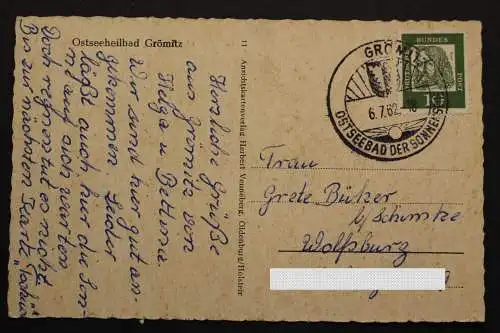 Ostseeheilbad Grömitz
Herzliche Grüße
aus Grömitz von
Helga u. Bettina.
Wir sind hier gut an-
gekommen. Leider
läßt auch hier die Son-
ne auf sich warten.
Doch regnet es nicht.
Bis zur nächsten Karte,
11 Ansichtskartenverlag Herbert Venneberg, Oldenburg/Holstein
GRÖMITZ
6.7.62.-18
OSTSEEBAD DER SONNENSEITE
DEUTSCHE BUNDESPOST
10
Frau
Grete Bülzer
b/
Wolfsburg